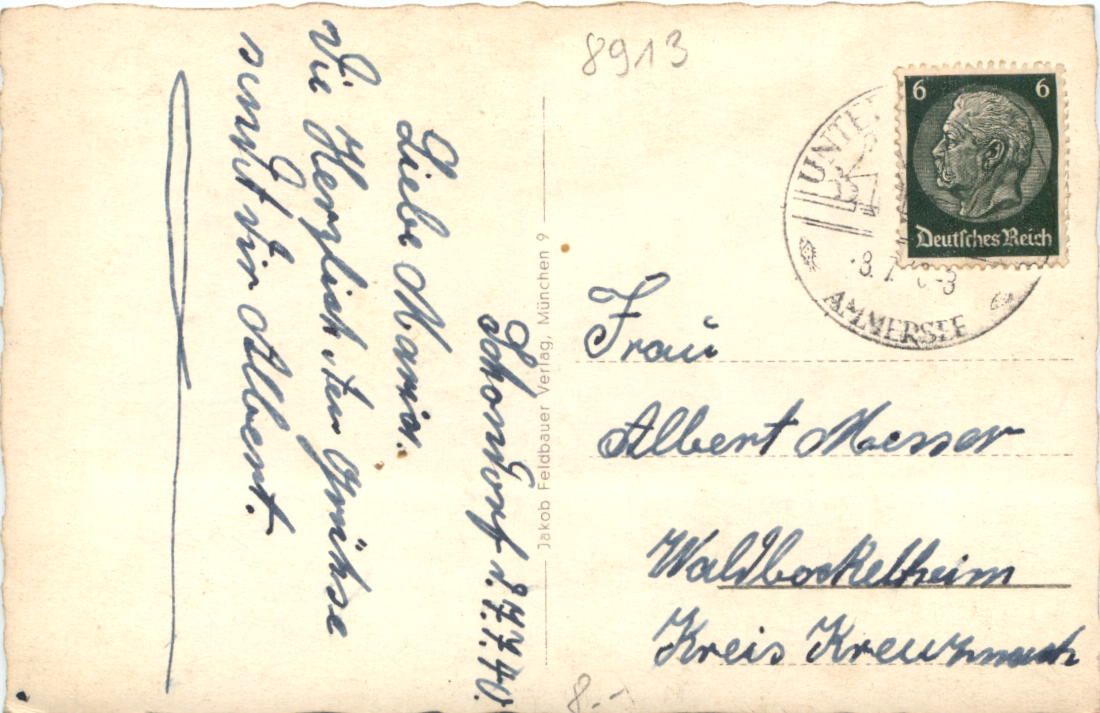 8913
6 6
Deutsches Reich
UNTE
8.7
AMMERSEE
Schondorf d. 7.7.40.
Liebe Maria.
Die Herzlichsten Grühse
sendet dir Albert.
Jakob Feldbauer Verlag, München 9
Frau
Albert Messer
Waldbockelheim
Kreis Kreuznach
8.-